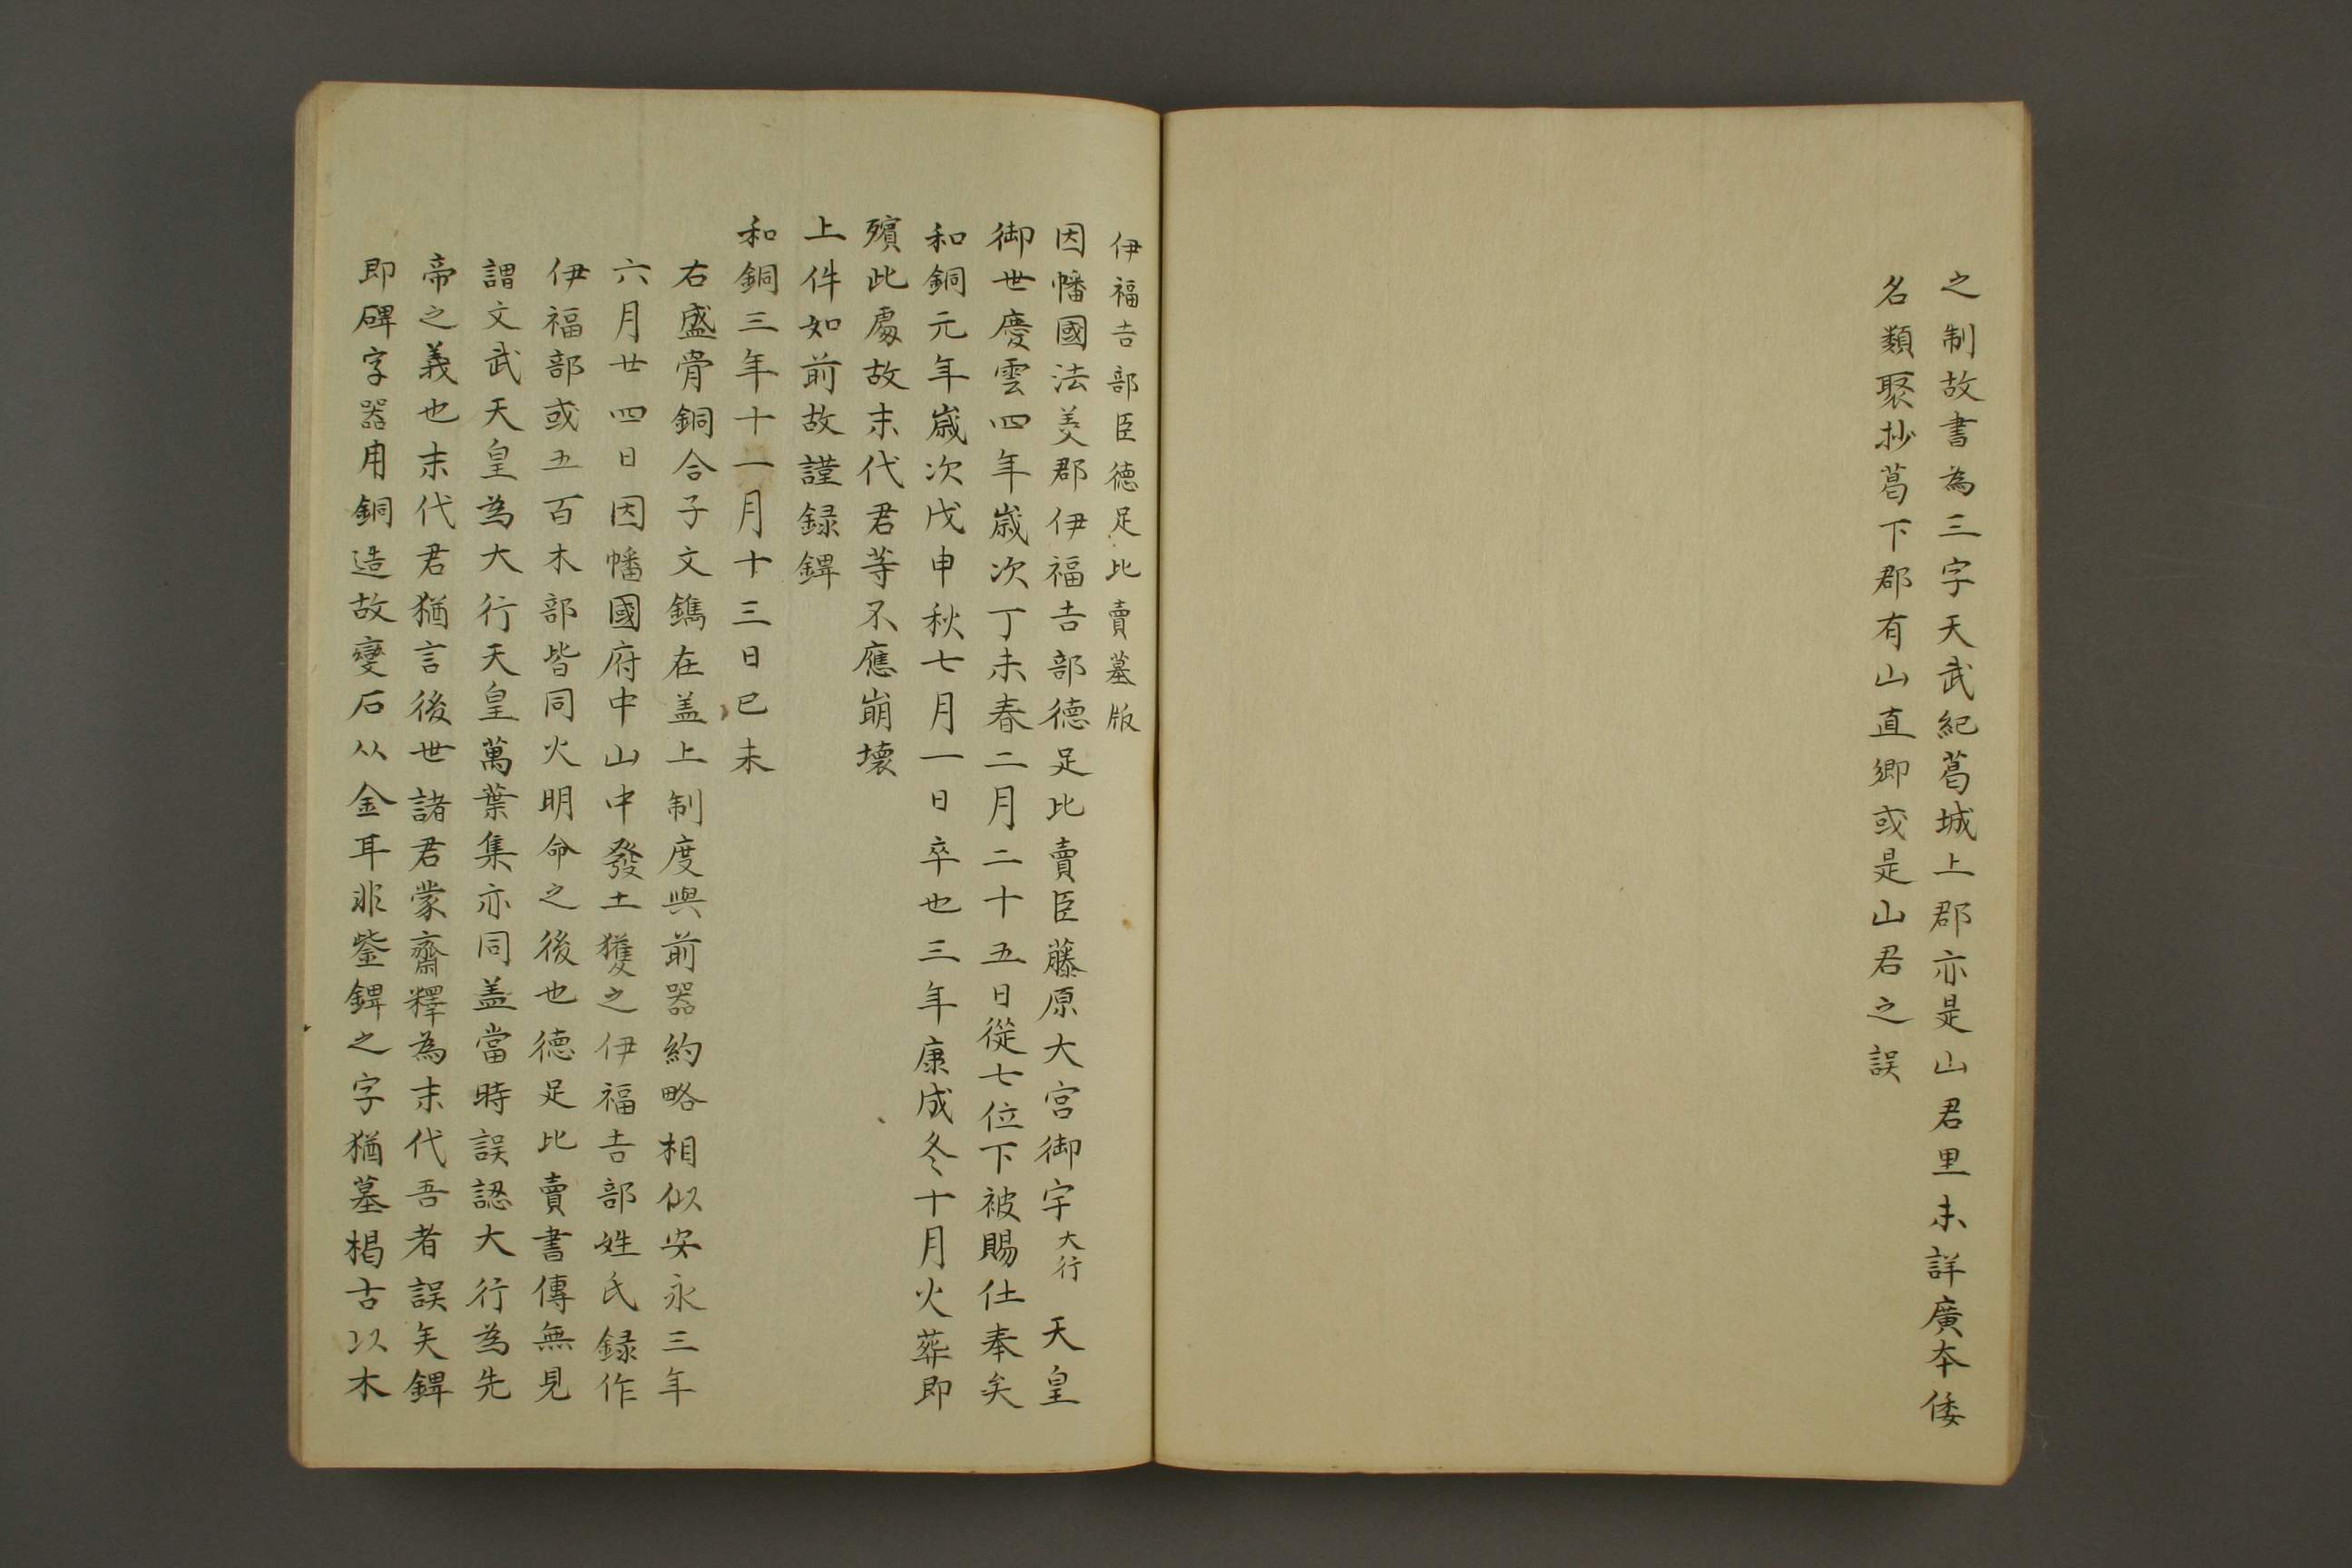 之制故書為三字天武紀葛城上郡亦是山君里未詳廣本倭
名類聚抄葛下郡有山直郷或是山君之誤
伊福吉部臣徳足比賣墓版
因幡國法美郡伊福吉部徳足比賣臣藤原大宮御宇大行　天皇
御世慶雲四年歳次丁未春二月二十五日從七位下被賜仕奉矣
和銅元年歳次戊申秋七月一日卒也三年庚戌冬十月火葬即
殯此處故末代君等不應崩壊
上件如前故謹録錍
和銅三年十一月十三日己未
右盛骨銅合子文鐫在盖上制度與前器約略相似安永三年
六月廿四日因幡國府中山中發土獲之伊福吉部姓氏録作
伊福部或五百木部皆同火明命之後也徳足比賣書傳無見
謂文武天皇為大行天皇萬葉集亦同盖當時誤認大行為先
帝之義也末代君猶言後世諸君蒙齋釋為末代吾者誤矣錍
即碑字器用銅造故變石从金耳非鈭錍之字猶墓楬古以木